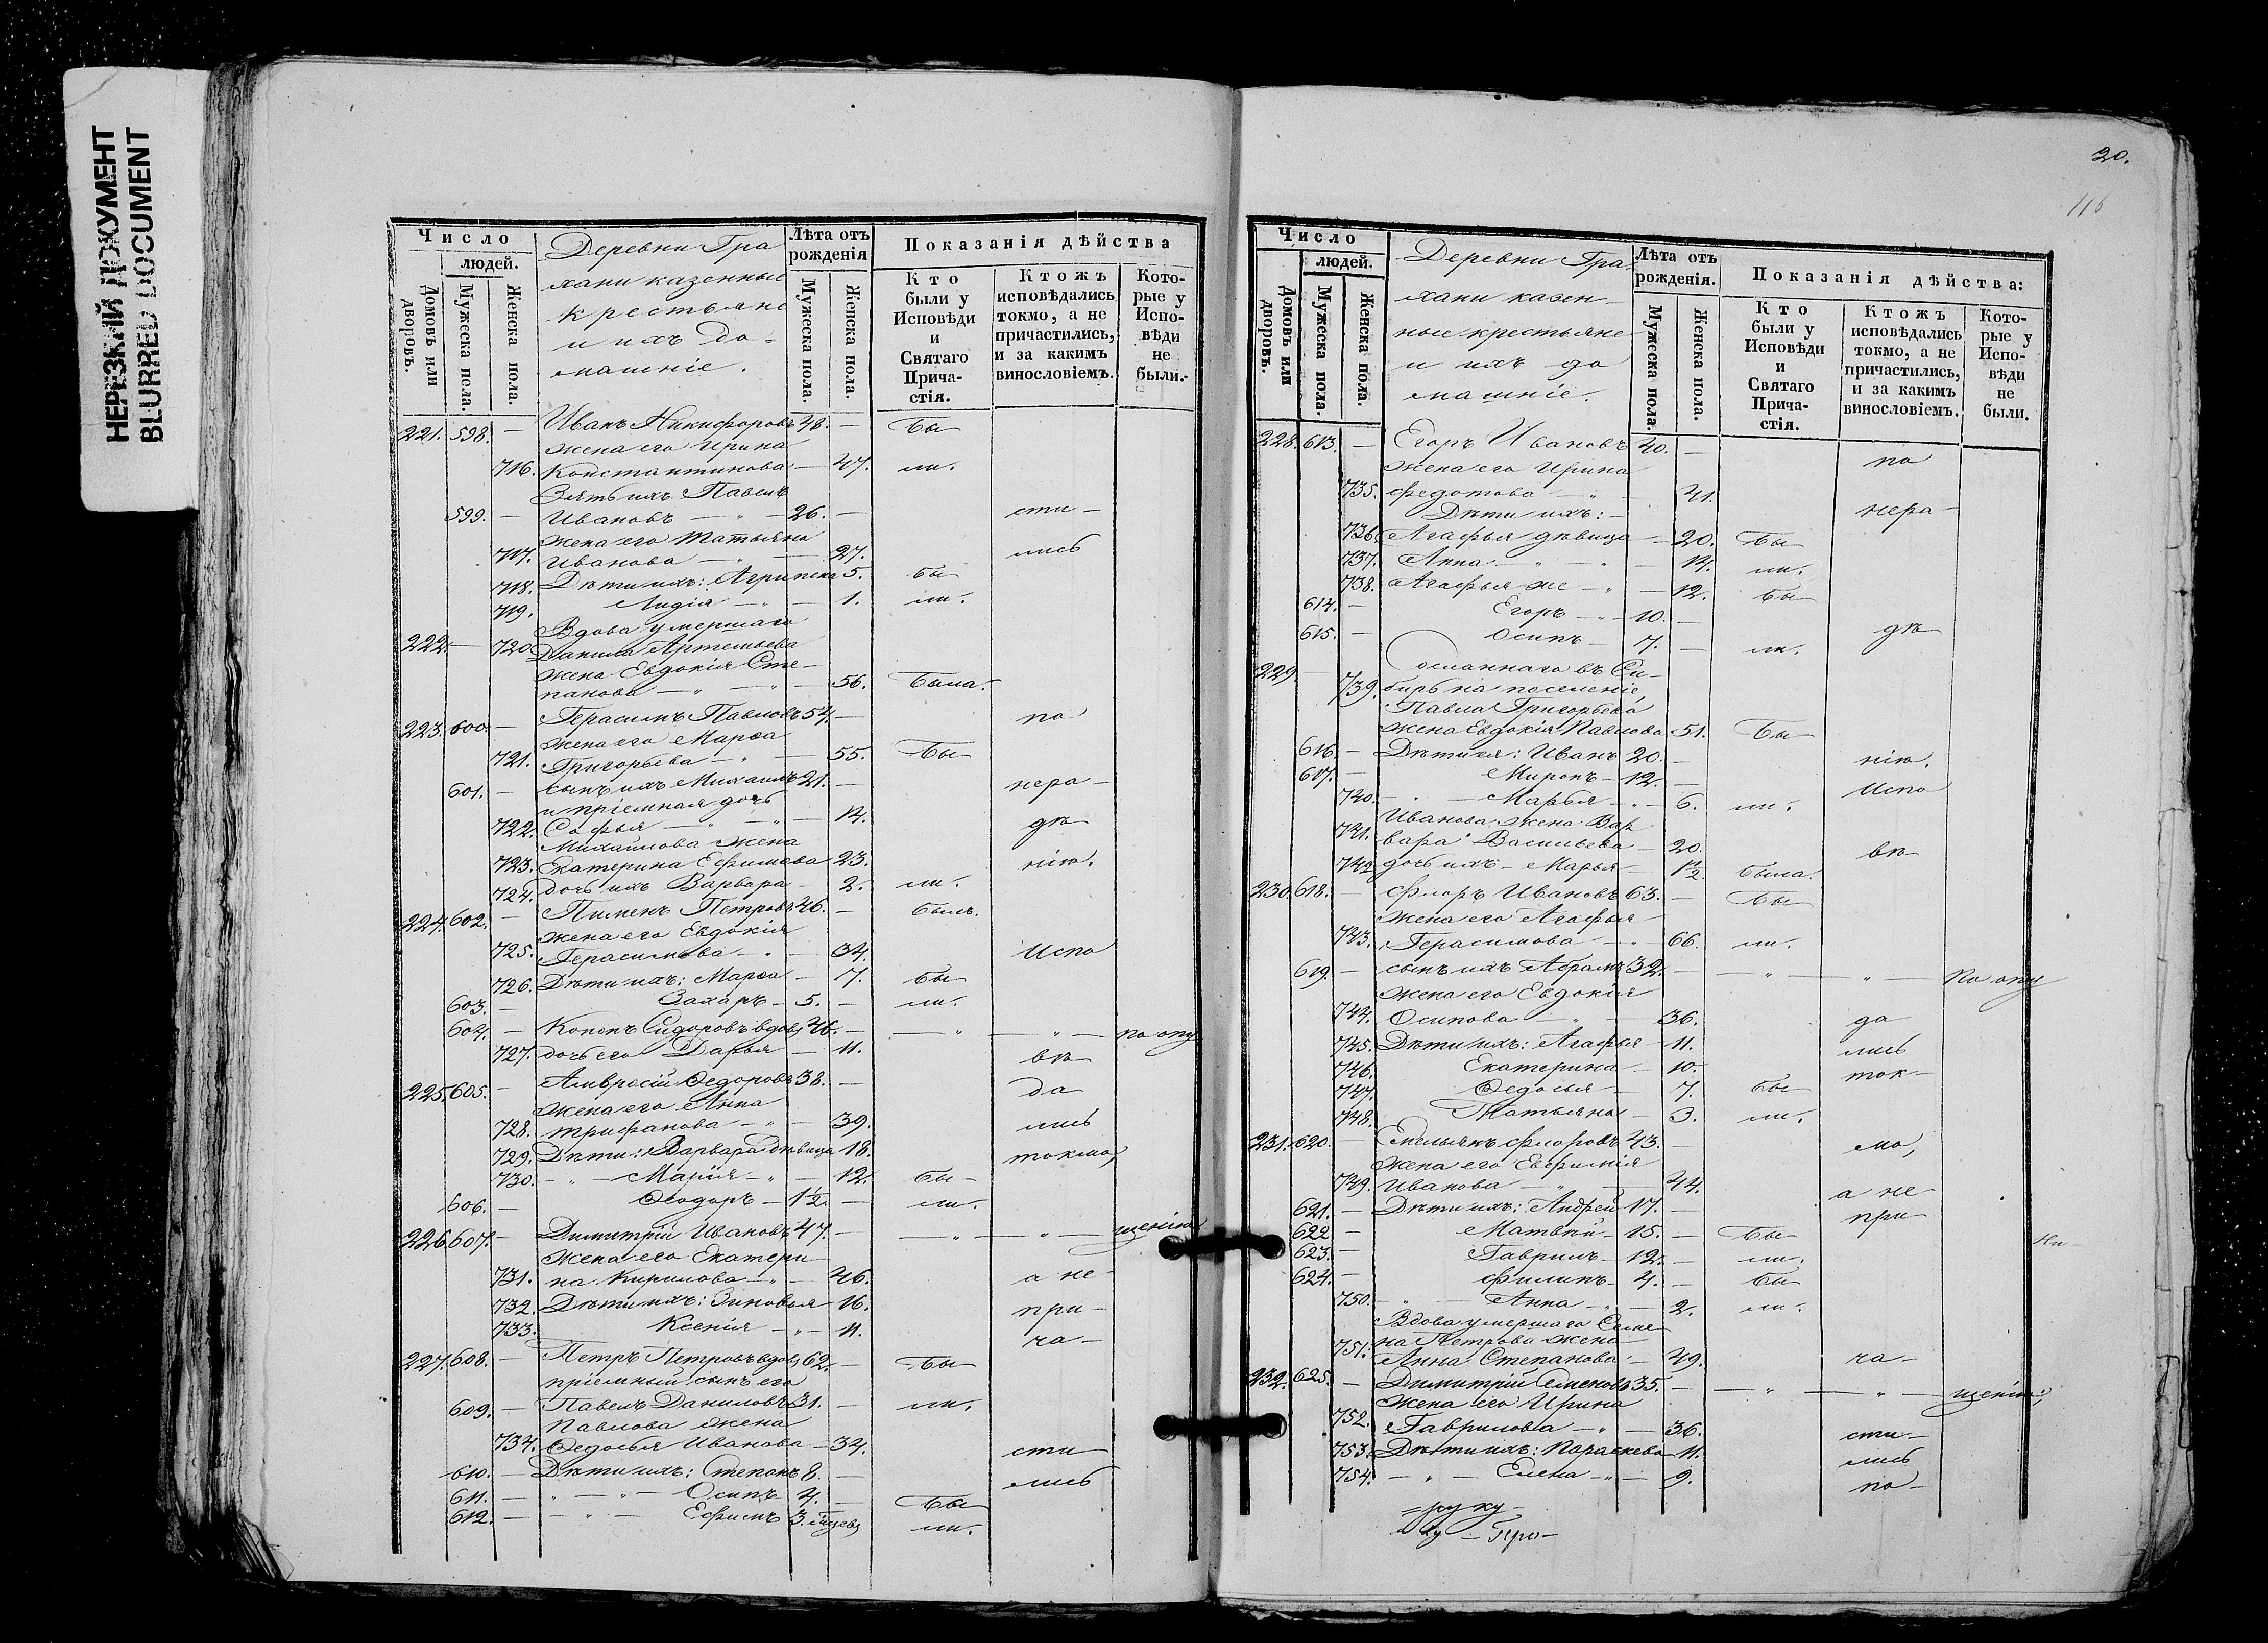 НЕРЕЗКИЙ ДОКУМЕНТ
BLURRED DOCUMENT
Число
людей.
Домовъ или дворовъ.
Мужеска пола.
Женска пола.
Деревни Гра
хани казенные
крестьяне
и ихъ до-
машніе.
Лѣта отъ рожденія
Мужеска пола.
Женска пола.
Показанія дѣйства
Кто были у Исповѣди и Святаго Прича-стія.
Ктожъ исповѣдались токмо, а не причастились, и за какимъ винословіемъ.
Кото-рые у Испо-вѣди не были.
221. 598. — Иванъ Никифоровъ 48. — бы
жена его Ирина
716. Константинова — 47. ли.
Зять ихъ Павелъ
599. — Ивановъ — " — 26. — сти —
жена его Татьяна
717. Иванова — " — 27. лись
718. Дѣти ихъ: Агрипена 5. бы
719. Лидія — " — 1. ли.
Вдова умершаго
222. — 720. Данила Артемьева
жена Евдокія Сте-
панова — " — " — 56. была.
223. 600. — Герасимъ Павловъ 54. — по
жена его Марѳа
721. Григорьева — " — 55. бы
601. — сынъ ихъ Михаилъ 21. — нера —
и пріемная дочь
722. Софья — " — " — 14. дѣ
Михайлова жена
723. Екатерина Ефимова 23. нію.
724. дочь ихъ Варвара — 2. ли.
224. 602. — Пименъ Петровъ 46. — былъ.
жена его Евдокія
725. Герасимова — " — 34. Испо
726. Дѣти ихъ: Марѳа — 7. бы
603. — Захаръ — 5. — ли.
604. — Кононъ Сидоровъ вдовъ 46. — — " — " — по опу
727. дочь его Дарья — 11. вѣ
225. 605. — Амвросій Ѳедоровъ 38. — да
жена его Анна
728. Трифанова — " — 39. лись
729. Дѣти: Варвара дѣвица 18. токмо,
730. — " — Марія — " — 12. бы —
606. — Ѳеодоръ — 1½. — ли.
226. 607. — Димитрій Ивановъ 47. — — " — " — щенію
жена его Екатери
731. на Кирилова — " — 46. а не
732. Дѣти ихъ: Зиновья — 16. при —
733. Ксенія — " — 11. ча —
227. 608. — Петръ Петровъ вдовъ 62. — бы
пріемный сынъ его
609. — Павелъ Даниловъ 31. — ли.
Павлова жена
734. Ѳедосья Иванова — 34. сти
610. — Дѣти ихъ: Степанъ 8. — лись
611. — " — " — Осипъ 4. — бы
612. — — " — Ефимъ 3. ли.
20.
116
Число
людей.
Домовъ или дворовъ.
Мужеска пола.
Женска пола.
Деревни Гра-
хани казен-
ные крестьяне
и ихъ до
машніе.
Лѣта отъ рожденія.
Мужеска пола.
Женска пола.
Показанія дѣйства:
Кто были у Исповѣди и Святаго Прича-стія.
Ктожъ исповѣдались токмо, а не причастились, и за какимъ винословіемъ.
Кото-рые у Испо-вѣди не были.
228. 613. — Егоръ Ивановъ 40. — по
жена его Ирина
735. Федотова — " — 41.
Дѣти ихъ: — нера —
736. Агафья дѣвица — 20. бы
737. Анна — " — " — 14. ли.
738. Агафья же — " — 12. бы
614. — Егоръ — " — 10. —
615. — Осипъ — 7. — ли. дѣ
229. — Сосланнаго въ Си-
739. бирь на поселеніе,
Павла Григорьева
жена Евдокія Павлова 51. бы
616. — Дѣти ея: Иванъ 20. — нію.
617. — Миронъ — 12. —
740. — " — Марья — " — 6. ли. Испо
Иванова жена Вар
741. вара Васильева — 20. вѣ
742. дочь ихъ — Марья — 1½. была.
230. 618. — Флоръ Ивановъ 63. — бы
жена его Агафья
743. Герасимова — " 66. ли.
619. — сынъ ихъ Абрамъ 32. — — " — " — по опу
жена его Евдокія
744. Осипова — " — 36. да
745. Дѣти ихъ: Агафья — 11. лись
746. Екатерина — 10. ток —
747. Ѳедосья — 7. бы
748. Татьяна — 3. ли.
231. 620. — Емельянъ Флоровъ 43. — мо,
жена его Евфимія
749. Иванова — " — 44. а не
621. — Дѣти ихъ: Андрей 17. — при
622. — Матвѣй — 15. — бы
623. — Гаврилъ — 12. — ли.
624. — Филипъ — 4. — бы
750. — " — Анна — " — 2. ли.
Вдова умершаго Семе
751. на Петрова жена
Анна Степанова — 49. ча —
232. 625. — Димитрій Семеновъ 35. — — " — " — щенію,
жена его Ирина
752. Гаврилова — " — 36. сти —
753. Дѣти ихъ: Параскева — 11. лись
754. — " — Елена — " — 9. по —
= руку —